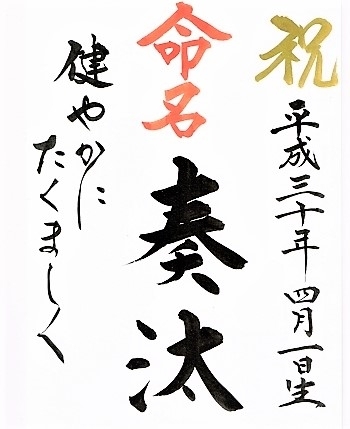 祝
平成三十年四月一日生
命名
奏汰
健やかに
たくましく